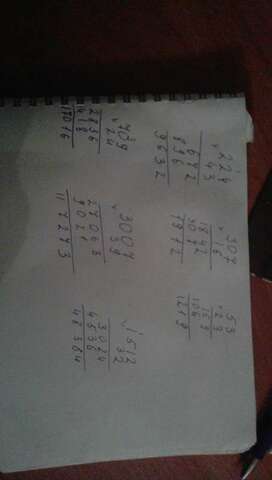 224
× 43
672
896
9632
307
× 16
1842
307
4912
53
× 23
159
106
1219
709
× 24
2836
1418
17016
3007
× 39
27063
9021
117273
1512
× 32
3024
4536
48384